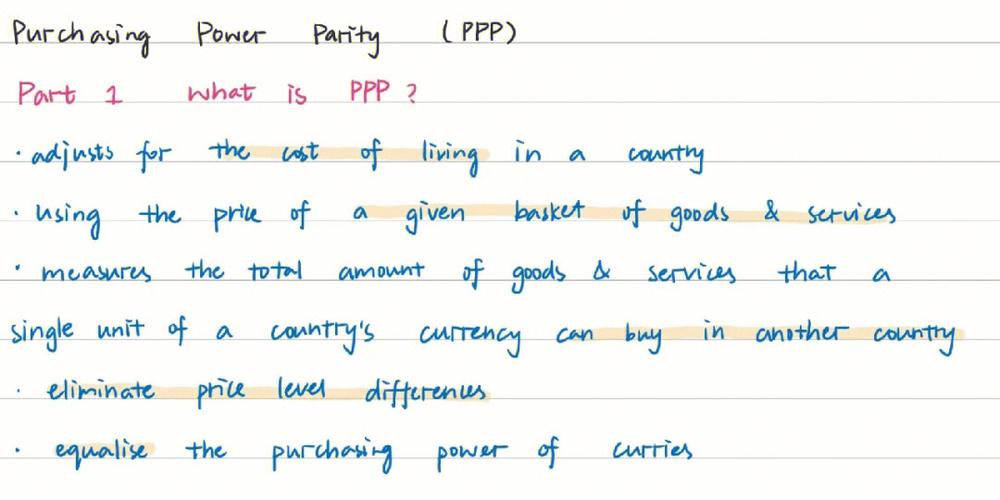 Purchasing Power Parity (PPP)
Part 1 What is PPP?
· adjusts for the cost of living in a country
· using the price of a given basket of goods & services
· measures the total amount of goods & services that a
single unit of a country's currency can buy in another country
· eliminate price level differences
· equalise the purchasing power of curries